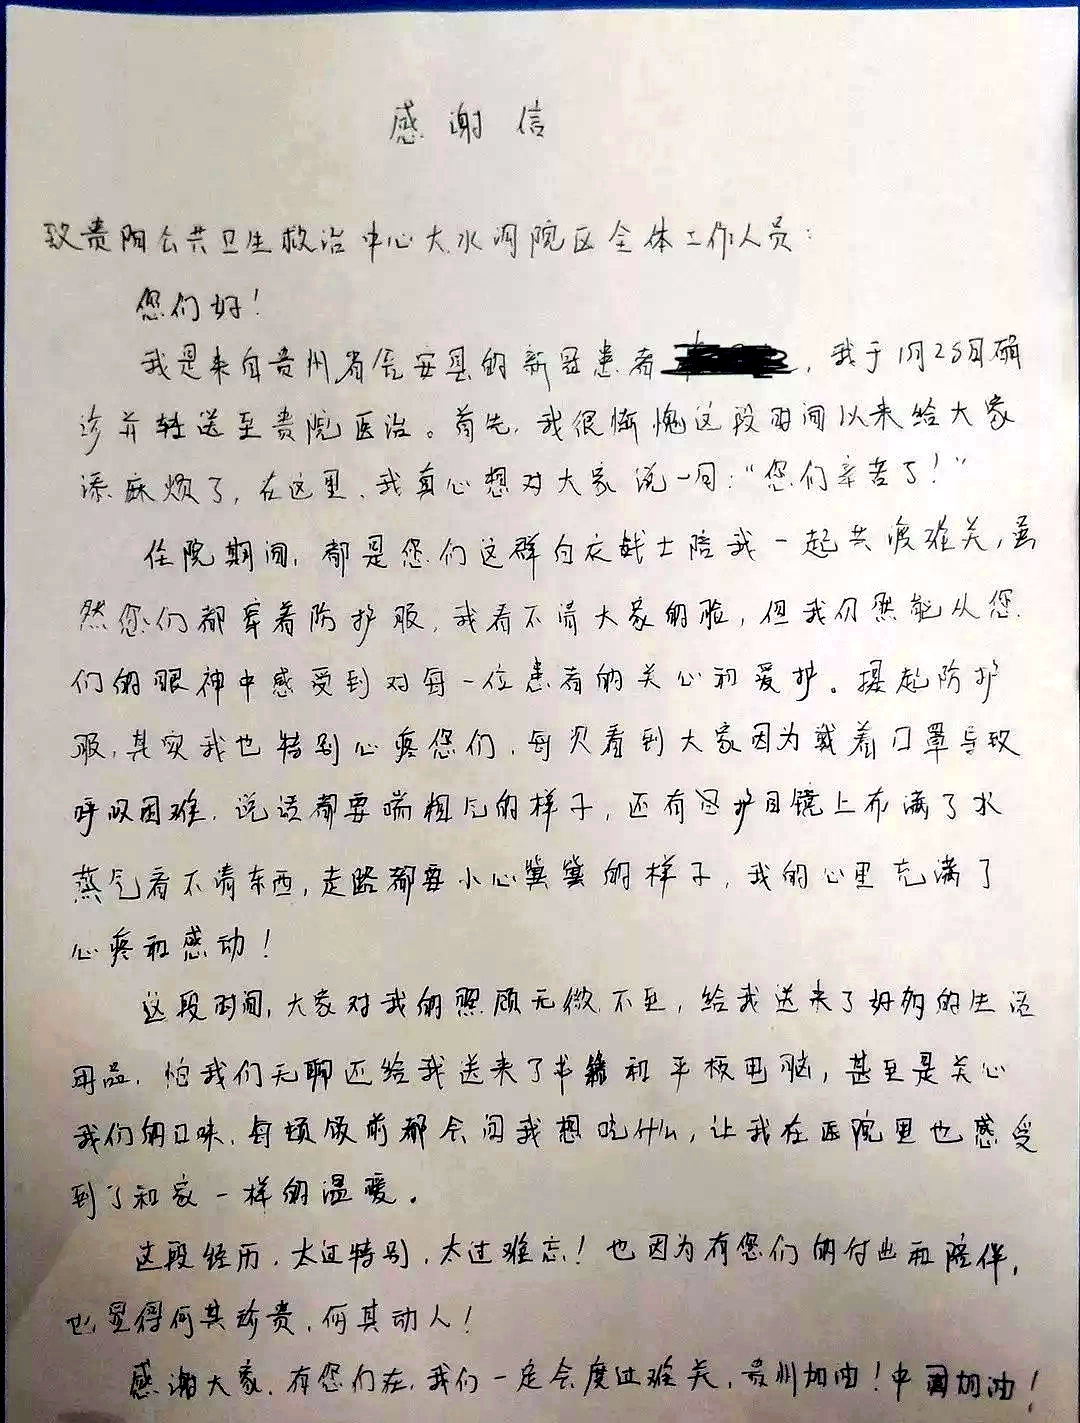 感谢信
致贵阳公共卫生救治中心大水沟院区全体工作人员：
您们好！
我是来自贵州省瓮安县的新冠患者，我于1月28日确
诊并转送至贵院医治。首先，我很惭愧这段时间以来给大家
添麻烦了，在这里，我真心想对大家说一句：“您们辛苦了！”
住院期间，都是您们这群白衣战士陪我一起共渡难关，虽
然您们都穿着防护服，我看不清大家的脸，但我仍然能从您
们的眼神中感受到对每一位患者的关心和爱护。提起防护
服，其实我也特别心疼您们，每次看到大家因为戴着口罩导致
呼吸困难，说话都要喘粗气的样子，还有因护目镜上布满了水
蒸气看不清东西，走路都要小心翼翼的样子，我的心里充满了
心疼和感动！
这段时间，大家对我的照顾无微不至，给我送来了好多的生活
用品，怕我们无聊还给我送来了书籍和平板电脑，甚至是关心
我们的口味，每顿饭前都会问我想吃什么，让我在医院里也感受
到了和家一样的温暖。
这段经历，太过特别，太过难忘！也因为有您们的付出和陪伴，
也显得何其珍贵，何其动人！
感谢大家，有您们在，我们一定会度过难关，贵州加油！中国加油！